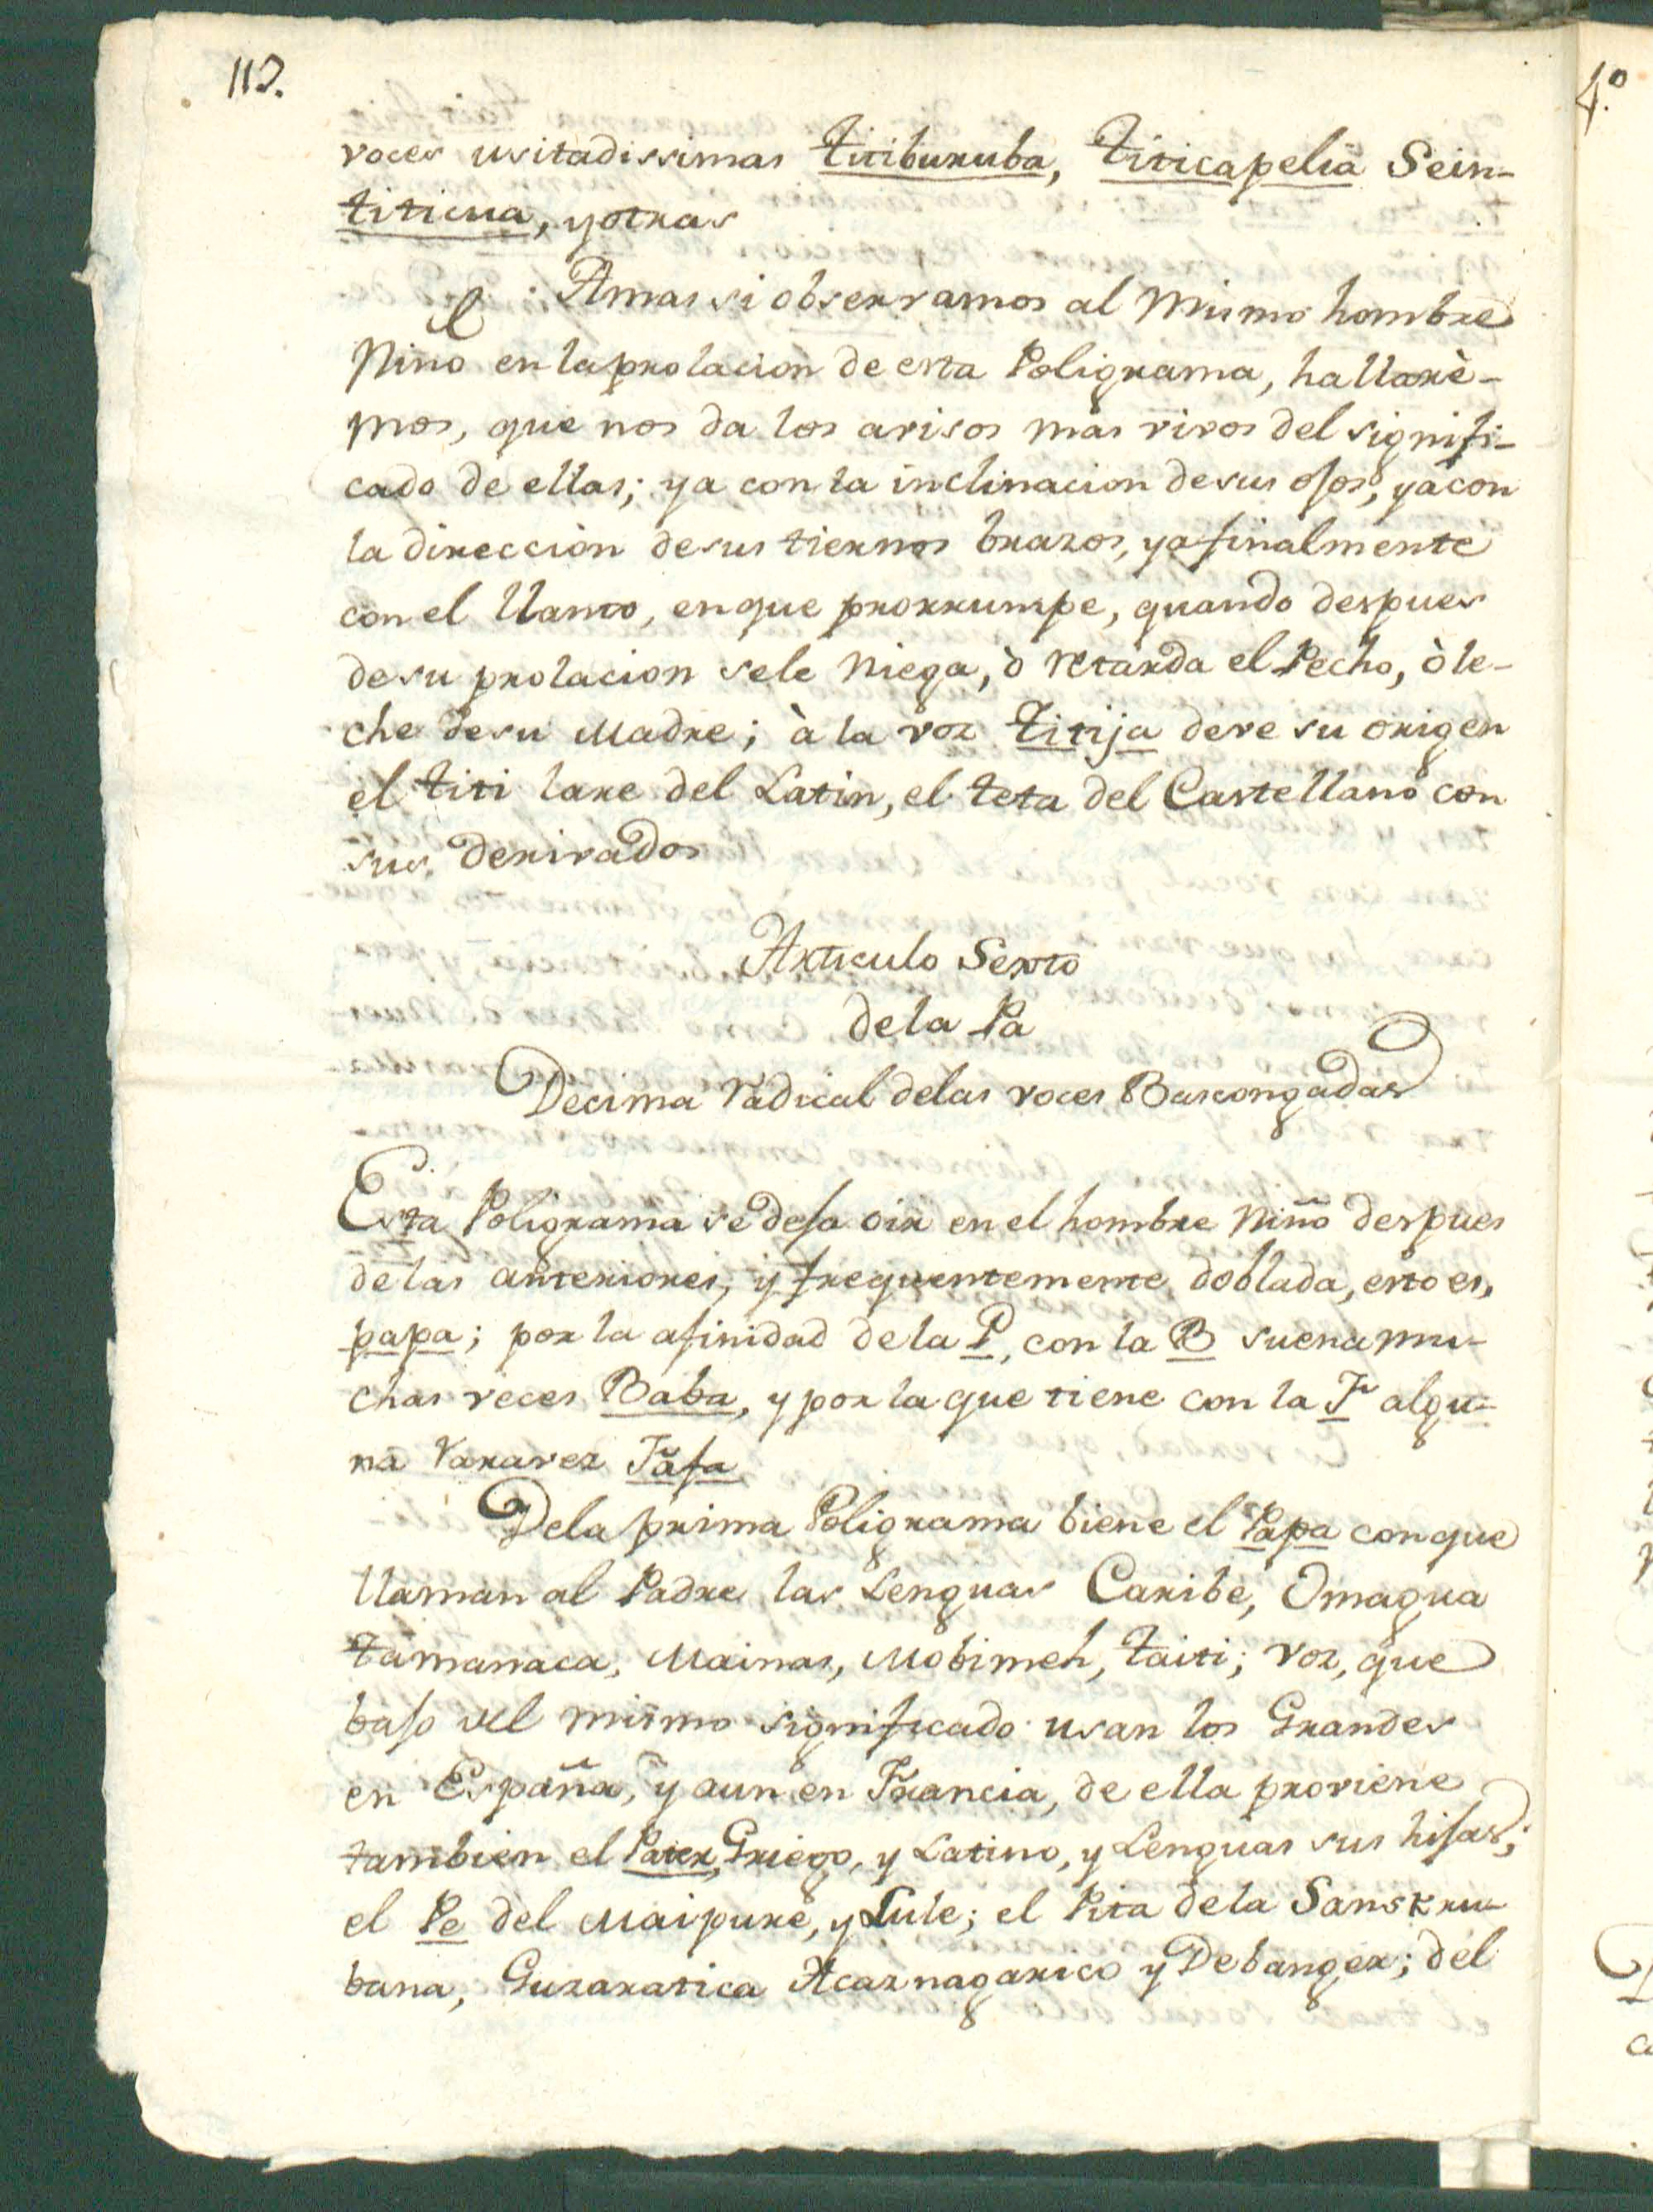 112.
voces usitadissimas titiburuba, titicapelia Sein-
titicua, y otras
Amas si observamos al mismo hombre
Niño en la prolacion de esta Poligrama, hallarè-
mos, que nos da los avisos mas vivos del signifi-
cado de ellas; ya con la inclinacion de sus ojos, yà con
la direcciòn de sus tiernos brazos, ya finalmente
con el llanto, en que prorrumpe, quando despues
de su prolacion se le niega, ò retarda el Pecho, ò le-
che de su Madre; à la voz titija deve su origen
el titi lare del Latin, el teta del Castellano con
sus derivados
Articulo Sexto
de la Pa
Decima radical de las voces Bascongadas
Esta Poligrama se deja oir en el hombre Niño despues
de las anteriores, y frequentemente doblada, esto es,
papa; por la afinidad de la P, con la B suena mu-
chas veces Baba, y por la que tiene con la F algu-
na raravez Fafa
De la prima Poligrama biene el Papa con que
llaman al Padre las Lenguas Caribe, Omagua
tamanaca, Mainas, Mobimeh, taiti; voz, que
bajo del mismo significado usan los Grandes
en España, y aun en Francia, de ella proviene
tambien el Pater, Griego, y Latino, y Lenguas sus hijas;
el Pe del Maipure, y Lule; el Pita de la Sanskru-
bana, Guzaratica Acaznagarico y Debanger; del
4.º